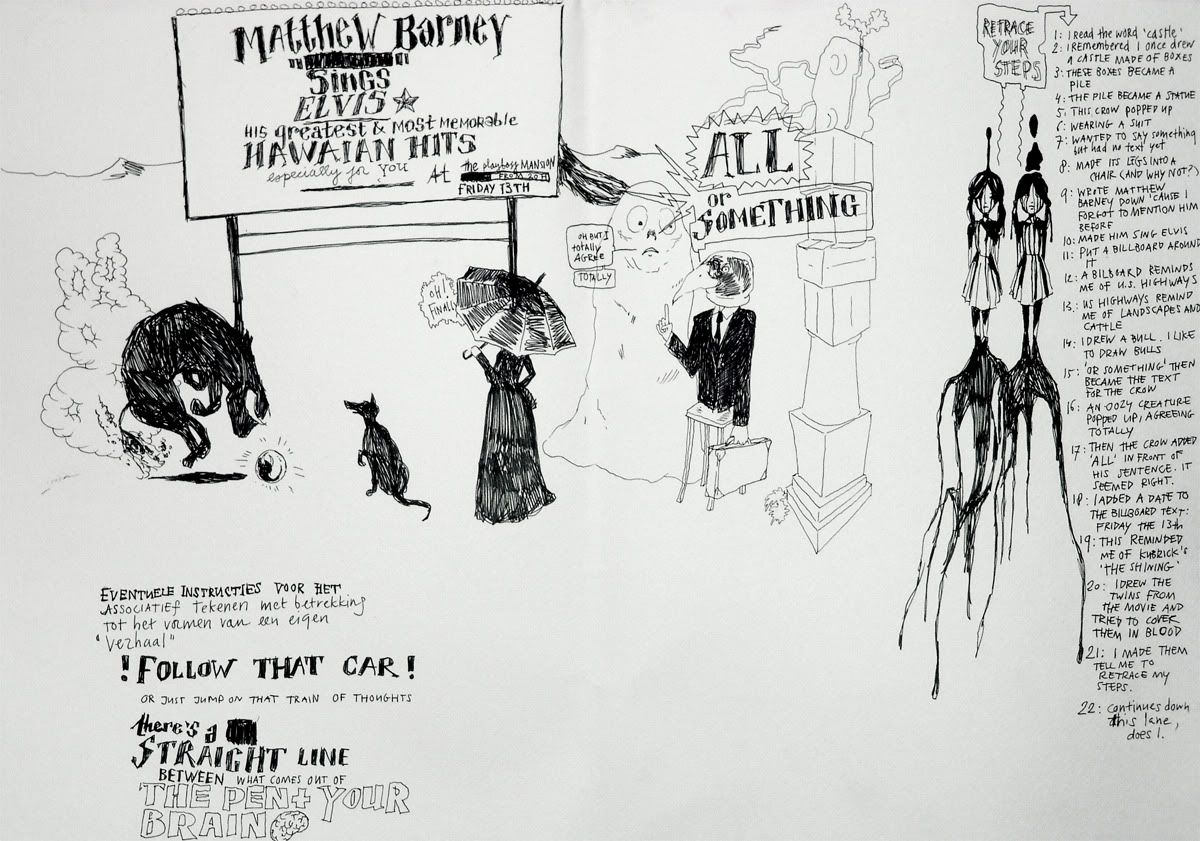 Matthew Barney
Sings
ELVIS
HIS greatest & MOST MEMORABLE
HAWAIAN HITS
especially for you
At the playboy MANSION
FRIDAY 13TH
OH! FINALLY
OH BUT I
totally
AGREE
TOTALLY
ALL
or
SOMETHING
RETRACE
YOUR
STEPS
1: I READ THE WORD 'CASTLE'
2: I REMEMBERED I ONCE DREW
A CASTLE MADE OF BOXES
3: THESE BOXES BECAME A
PILE
4: THE PILE BECAME A STATUE
5: THIS CROW POPPED UP
6: WEARING A SUIT
7: WANTED TO SAY something
but HAD NO TEXT yet
8: MADE ITS LEGS INTO A
CHAIR (AND WHY NOT?)
9: WROTE MATTHEW
BARNEY DOWN 'CAUSE I
FORGOT TO MENTION HIM
BEFORE
10: MADE HIM SING ELVIS
11: PUT A BILLBOARD AROUND
IT
12: A BILBOARD REMINDS
ME OF U.S. HIGHWAYS
13: US HIGHWAYS REMIND
ME OF LANDSCAPES AND
CATTLE
14: I DREW A BULL. I LIKE
TO DRAW BULLS
15: 'OR SOMETHING' THEN
BECAME THE TEXT
FOR THE CROW
16: AN OOZY CREATURE
POPPED UP, AGREEING
TOTALLY
17: THEN THE CROW ADDED
'ALL' IN FRONT OF
HIS SENTENCE. IT
SEEMED RIGHT.
18: I ADDED A DATE TO
THE BILLBOARD TEXT:
FRIDAY THE 13th
19: THIS REMINDED
ME OF KUBRICK'S
'THE SHINING'
20: I DREW THE
TWINS FROM
THE MOVIE AND
TRIED TO COVER
THEM IN BLOOD
21: I MADE THEM
TELL ME TO
RETRACE MY
STEPS.
22: continues down
this lane,
does I.
EVENTUELE INSTRUCTIES VOOR HET
ASSOCIATIEF tekenen met betrekking
tot het vormen van een eigen
"verhaal"
! FOLLOW THAT CAR !
OR JUST JUMP ON THAT TRAIN OF THOUGHTS
there's a
STRAIGHT LINE
BETWEEN WHAT COMES OUT OF
THE PEN + YOUR
BRAIN